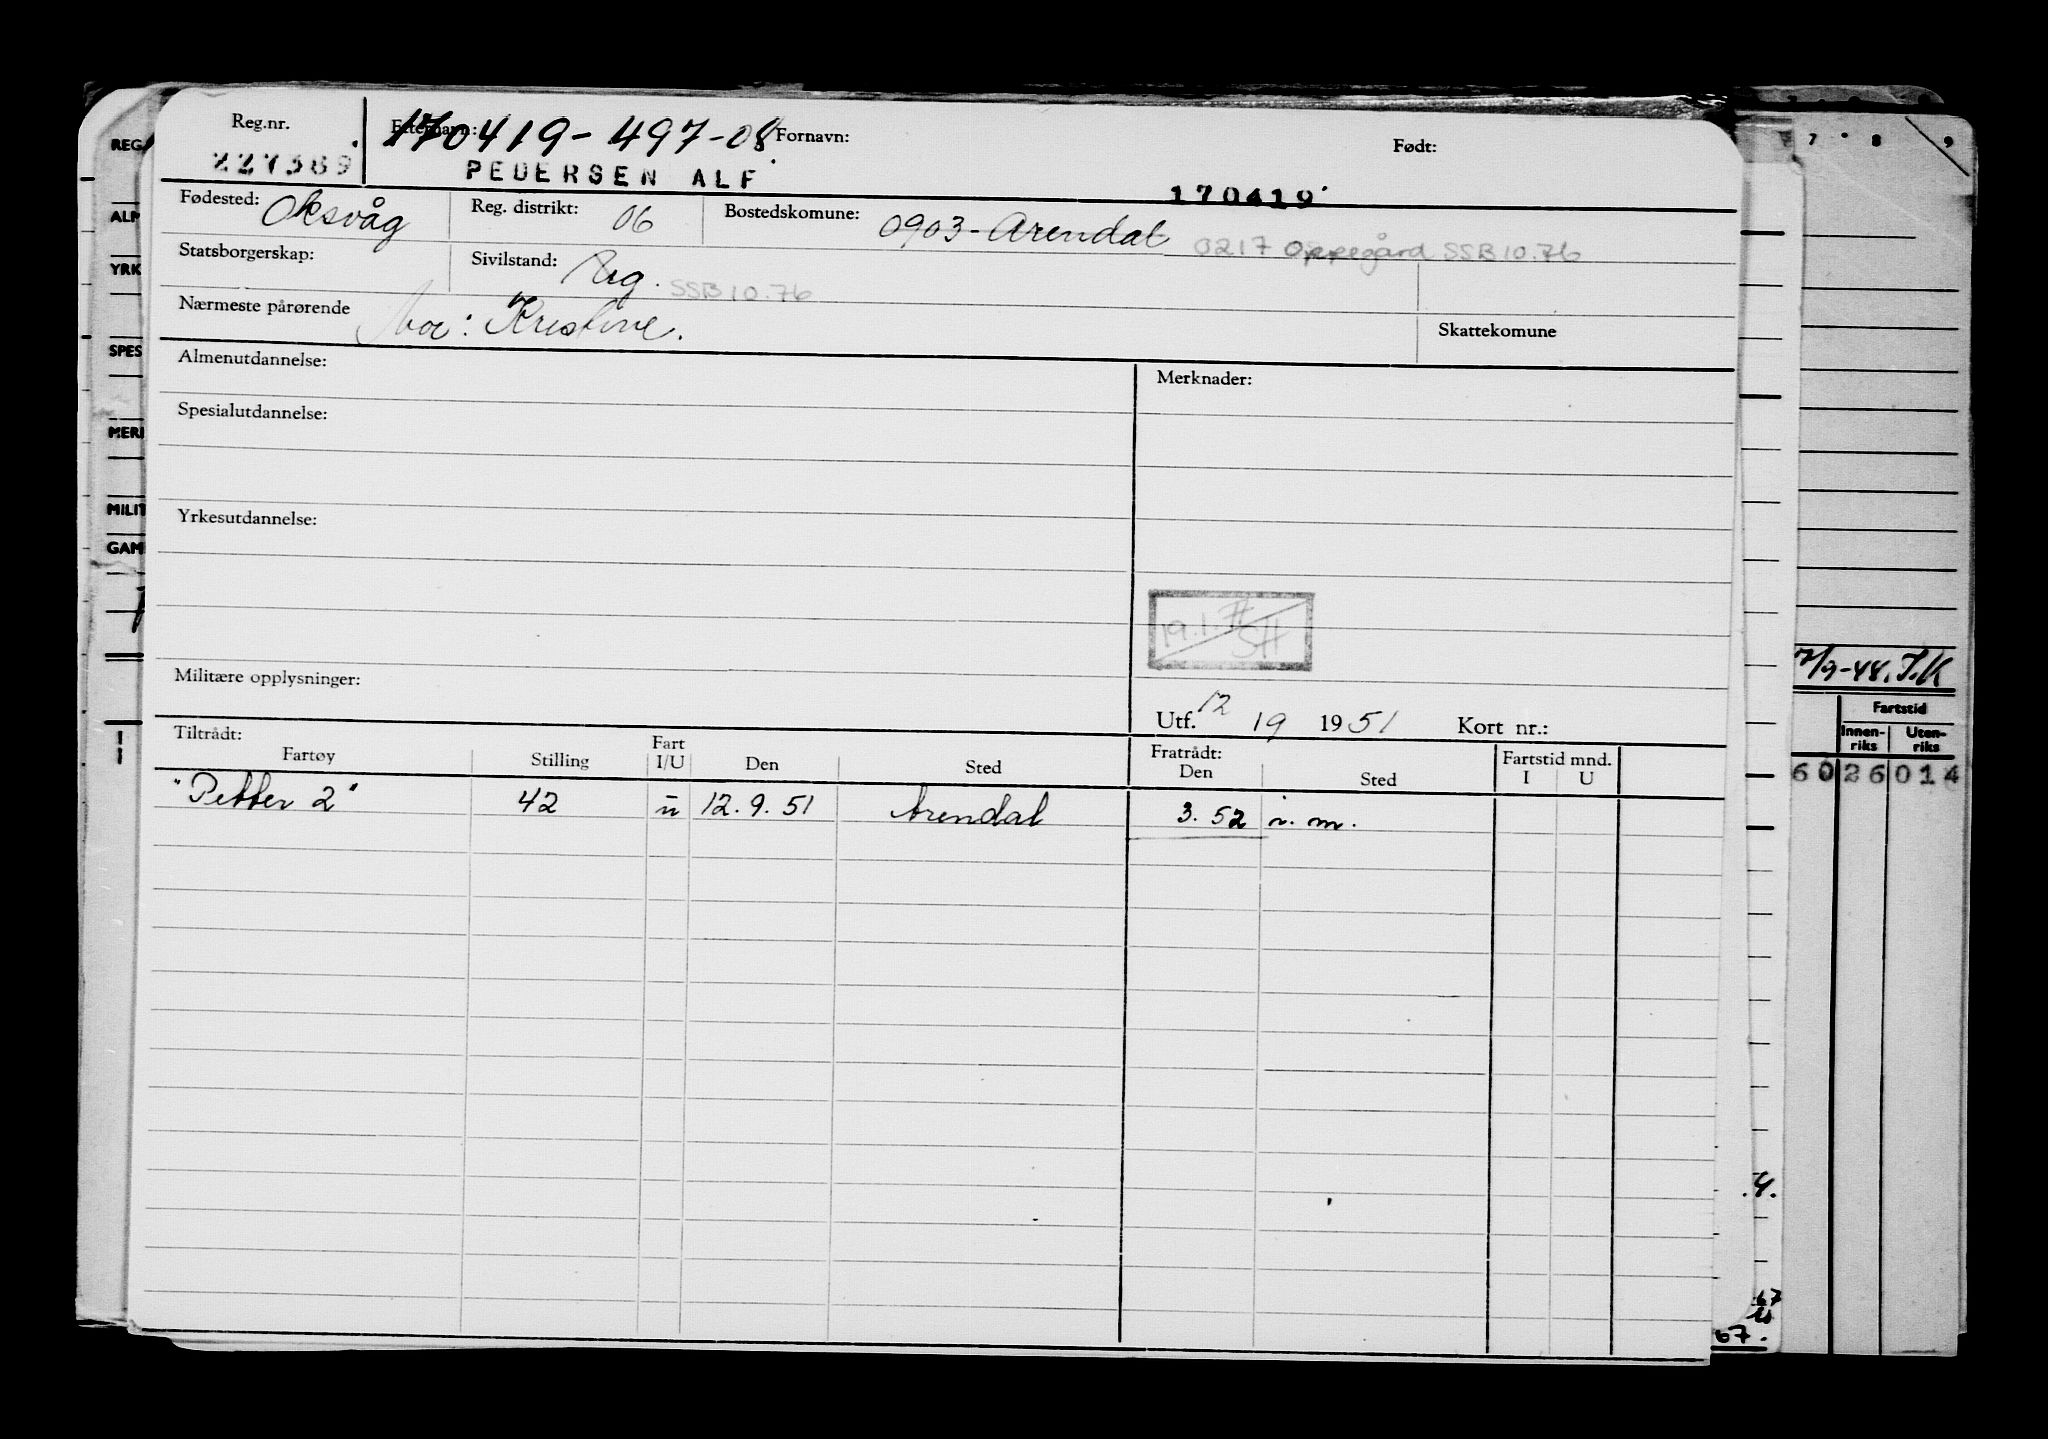 Reg.nr. Etternavn: 170419-497-08 Fornavn: Født:
227389 PEDERSEN ALF 170419
Fødested: Oksvåg Reg. distrikt: 06 Bostedskomune: 0903-Arendal 0217 Oppegård SSB 10.76
Statsborgerskap: Sivilstand: Ug. SSB 10.76
Nærmeste pårørende Moe: Kristine. Skattekomune
Almenutdannelse: Merknader:
Spesialutdannelse:
Yrkesutdannelse:
19.1.77 SH
Militære opplysninger:
Utf. 12 19 1951 Kort nr.:
Tiltrådt: Fratrådt:
Fartøy Stilling Fart I/U Den Sted Den Sted Fartstid mnd. I U
"Petter 2" 42 u 12.9.51 Arendal 3.52 i. m.
REG
ALF
YRK
SPES
MERI
MILIT
GAM
7 8 9
7/9-48. T.K
Fartstid
Innen-riks Uten-riks
60 26 014
.4.
67
67.